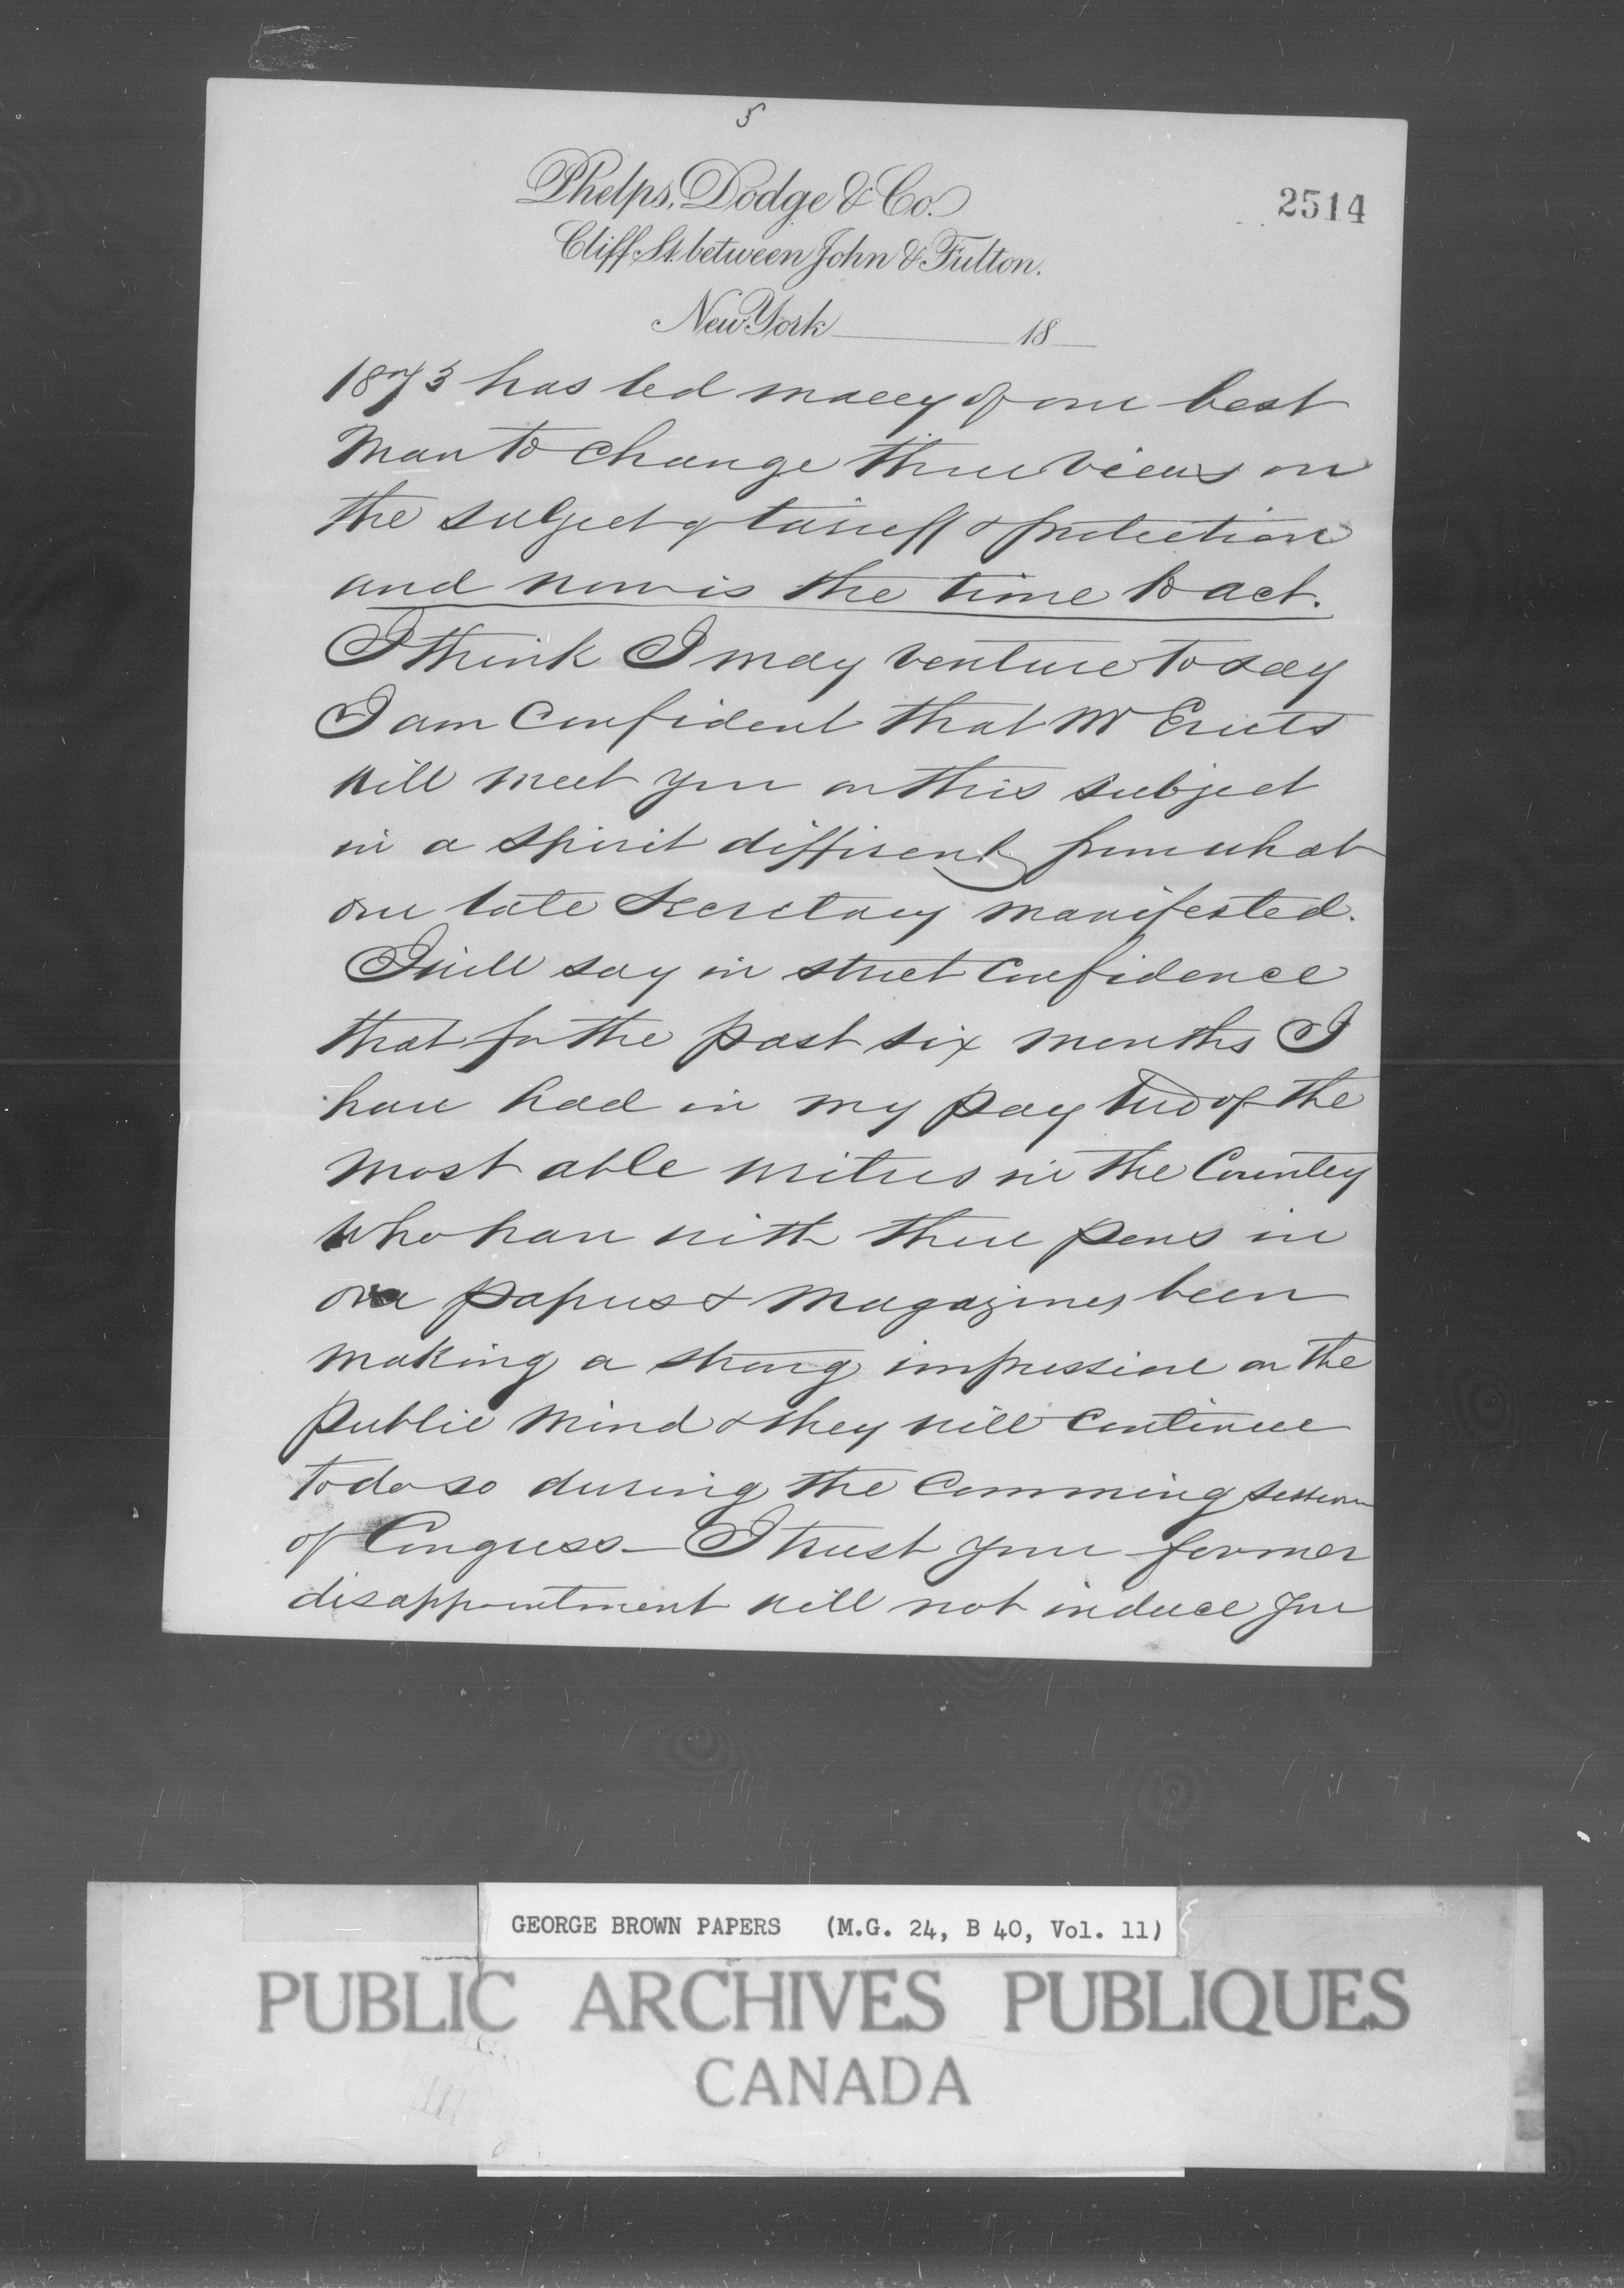 5
Phelps, Dodge & Co.
2514
Cliff St. between John & Fulton.
New York 18
1873 has led many of our best
Man to change their views on
the subject of tariff & protection
and now is the time to act.
I think I may venture to say
I am Confident that Mr Evarts
will meet you on this subject
in a spirit different from what
our late Secretary manifested.
I will say in strict Confidence
that for the past six months I
have had in my pay two of the
most able writers in the Country
who have with their pens in
our papers & Magazines been
making a strong impression on the
public Mind & they will continue
to do so during the Comming session
of Congress – I trust your former
disappointment will not induce you
GEORGE BROWN PAPERS (M.G. 24, B 40, Vol. 11)
PUBLIC ARCHIVES PUBLIQUES
CANADA